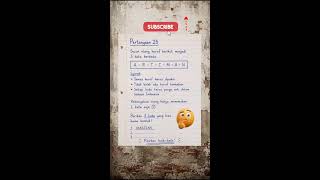 SUBSCRIBE
Pertanyaan 25
Susun ulang huruf berikut menjadi
3 kata berbeda
Syarat:
Semua huruf harus dipakai
Tidak boleh ada huruf tambahan
Setiap kata harus punya arti dalam
bahasa Indonesia
Kebanyakan orang hanya menemukan
1 kata saja
Berikan 3 kata yang bisa
kamu bentuk!
1.
2.
3.